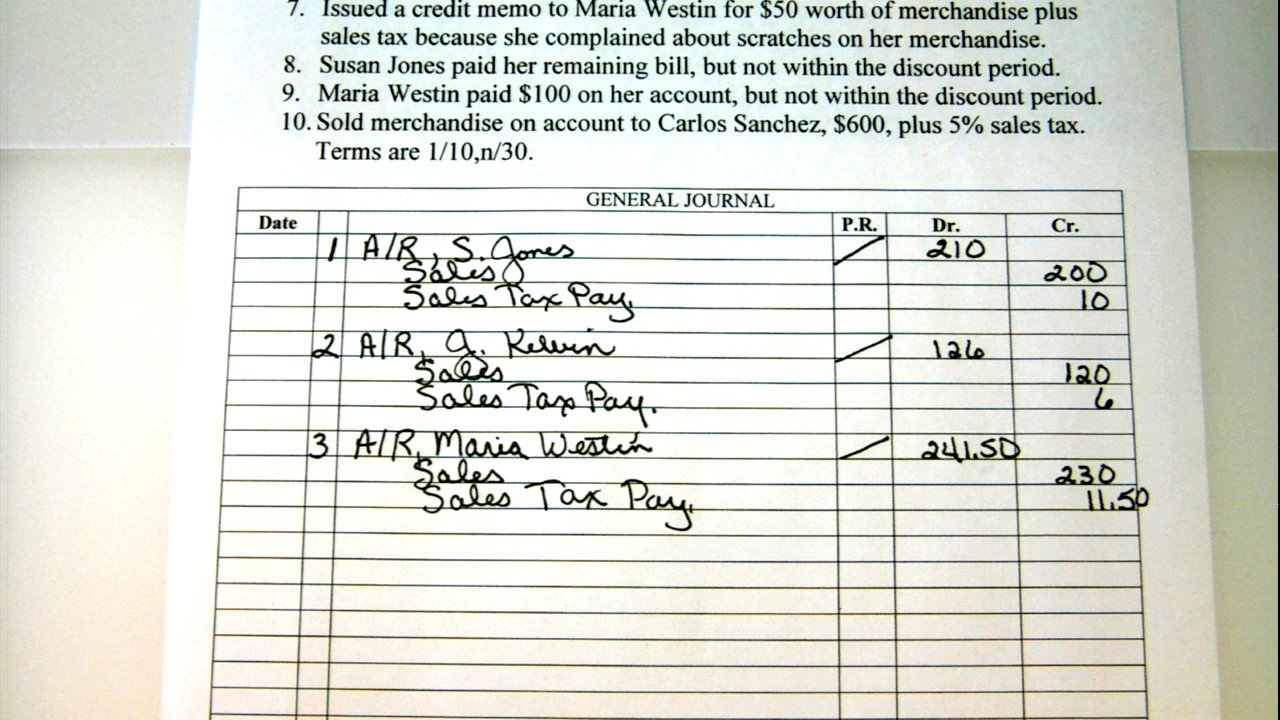 7. Issued a credit memo to Maria Westin for $50 worth of merchandise plus
sales tax because she complained about scratches on her merchandise.
8. Susan Jones paid her remaining bill, but not within the discount period.
9. Maria Westin paid $100 on her account, but not within the discount period.
10. Sold merchandise on account to Carlos Sanchez, $600, plus 5% sales tax.
Terms are 1/10,n/30.
GENERAL JOURNAL
Date P.R. Dr. Cr.
1 A/R, S. Jones 210
Sales 200
Sales Tax Pay. 10
2 A/R, A. Kelvin 126
Sales 120
Sales Tax Pay. 6
3 A/R, Maria Westin 241.50
Sales 230
Sales Tax Pay. 11.50